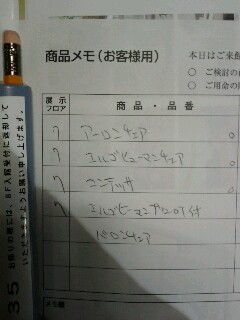 商品メモ（お客様用）
本日はご来館
○ ご検討の
○ ご用命の
展示フロア
商品・品番
7 アーロンチェア
7 エルゴヒューマンチェア
7 コンテッサ
7 エルゴヒューマンプロ
バロンチェア
メモ欄
お帰りの際には、8F入館受付に返却して
いただきますようお願い申し上げます。
35